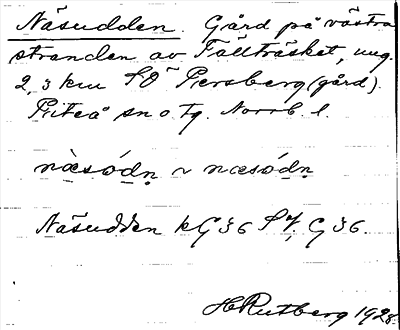 Näsudden. Gård på västra
stranden av Fällträsket, ung.
2,3 km SO Persberg (gård).
Piteå sn o tg. Norrb. l.
näsódn̥ ~ næsódn̥
Näsudden kG36 SV, G36.
H Rutberg 1928.